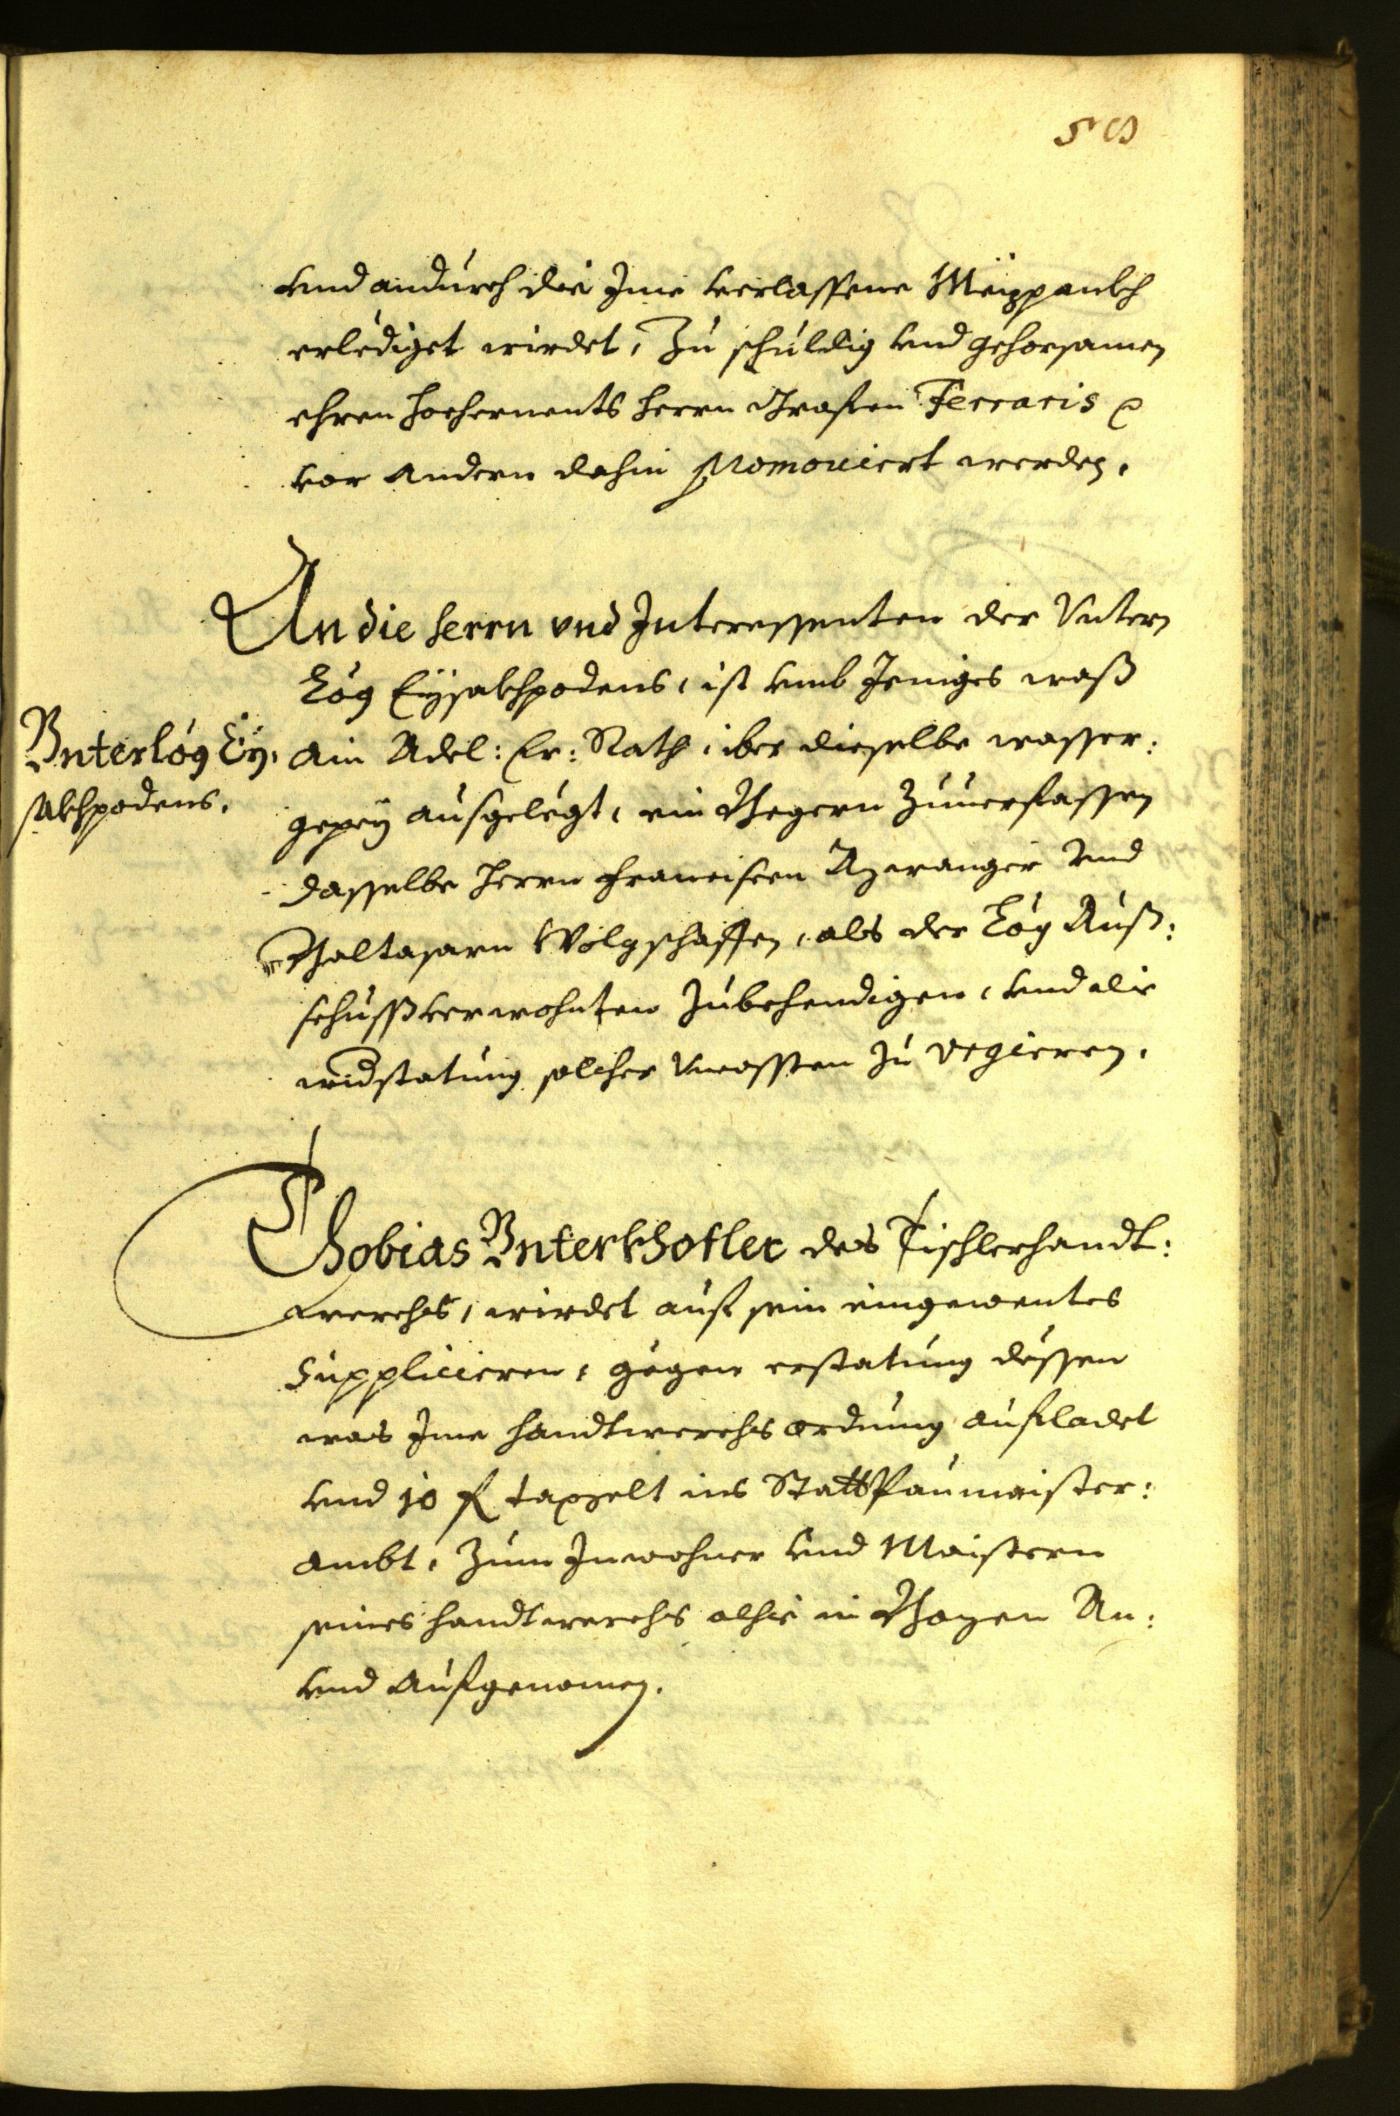 58
vnd andurch die Ime verlassene Meizpanckh
erlediget wirdet, Zu schuldig vnd gehorsamen
ehren hochernents herrn Grafen Ferraris
vor andern dahin promouiert werden.
An die herrn vnd Interessenten der Vntern
Lög Eysakhpodens, ist vmb Jeniges waß
ain Adel: Er: Rath, iber dieselbe wasser:
gepey ausgelegt, ein Begern Zuuerfassen
dasselbe Herrn Francissen Azwanger vnd
Baltasarn Wolgschaffen, als der Lög Auß:
schuss verwohnten Zubehendigen, vnd die
widstatung solcher Vncossten Zu vrgieren.
Vnterlög Ey:
sakhpodens.
Thobias Vnterkhofler des Tischlerhandt:
werchs, wirdet auf sein eingewentes
Supplicieren, gegen erstatung dessen
was Ime handtwerchs ordnung aufladet
vnd 10 fl taxgelt ins Statt Paumaister:
ambt, Zum Inwohner vnd Maistern
seines handtwerchs alhie in Bozen An:
vnd Aufgenomen.